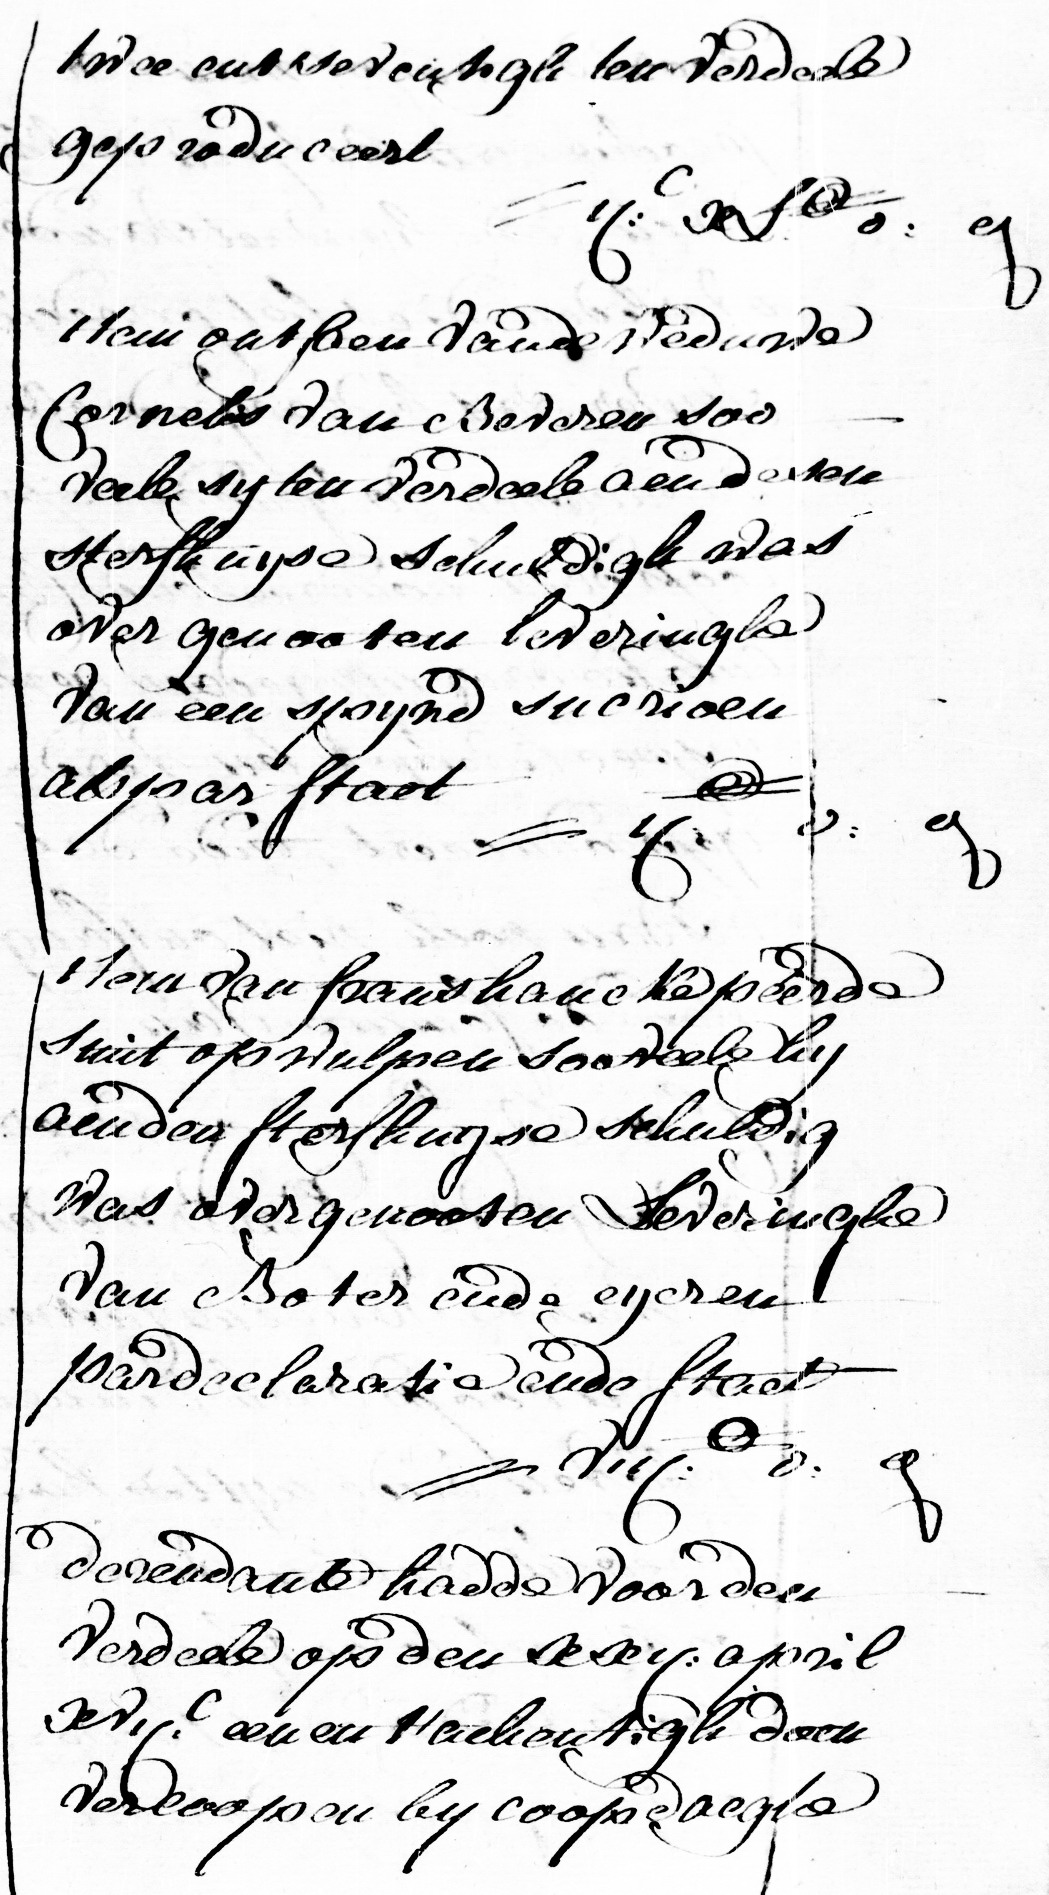 twee entseventigh ten verdeele
geproduceert
ij:C xl lb 0: g
Item ontfaen vande Weduwe
Cornelis van Beveren soo
veele sy ten verdeele aen desen
sterfhuyse schuldigh was
over genooten leveringhe
van een spynd sucrioen
als par staet
ij: lb 0: g
Item van frans hancke peerde
smit op wulpen soo veele hy
aenden sterfhuyse schuldig
was over genooten Leveringhe
van Boter ende eyeren
par declaratie ende staet
viij: lb 0: g
derendante hadde voor den
verdeele op den xxij: april
xvij:C een en tachentigh doen
vercoopen by coopdaeghe